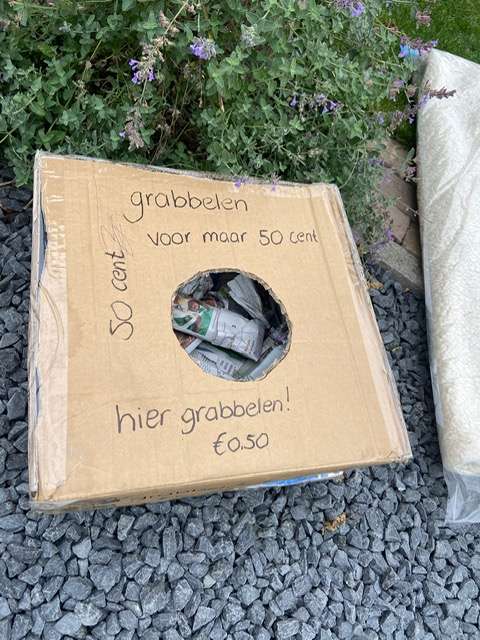 grabbelen
voor maar 50 cent
50 cent
hier grabbelen!
€0.50